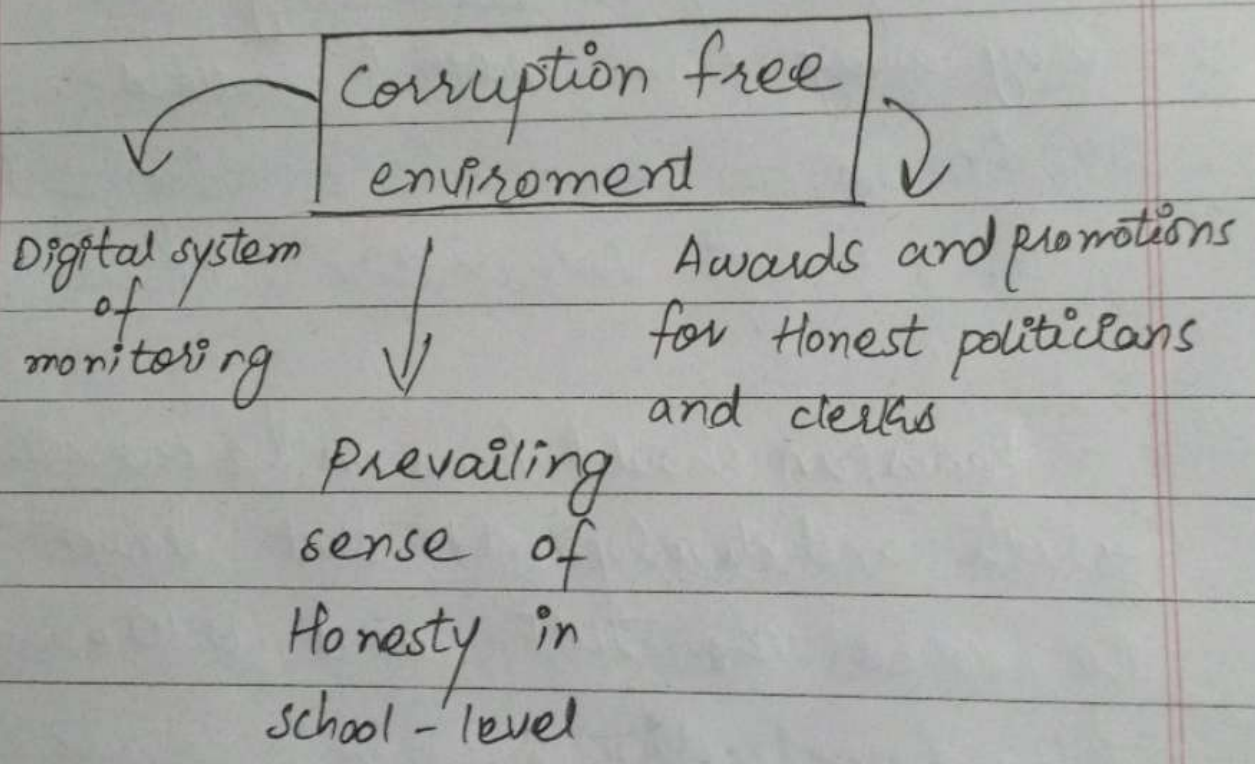 Corruption free
enviroment
Digital system
of
monitoring
Prevailing
sense of
Honesty in
school-level
Awards and promotions
for Honest politicians
and clerks